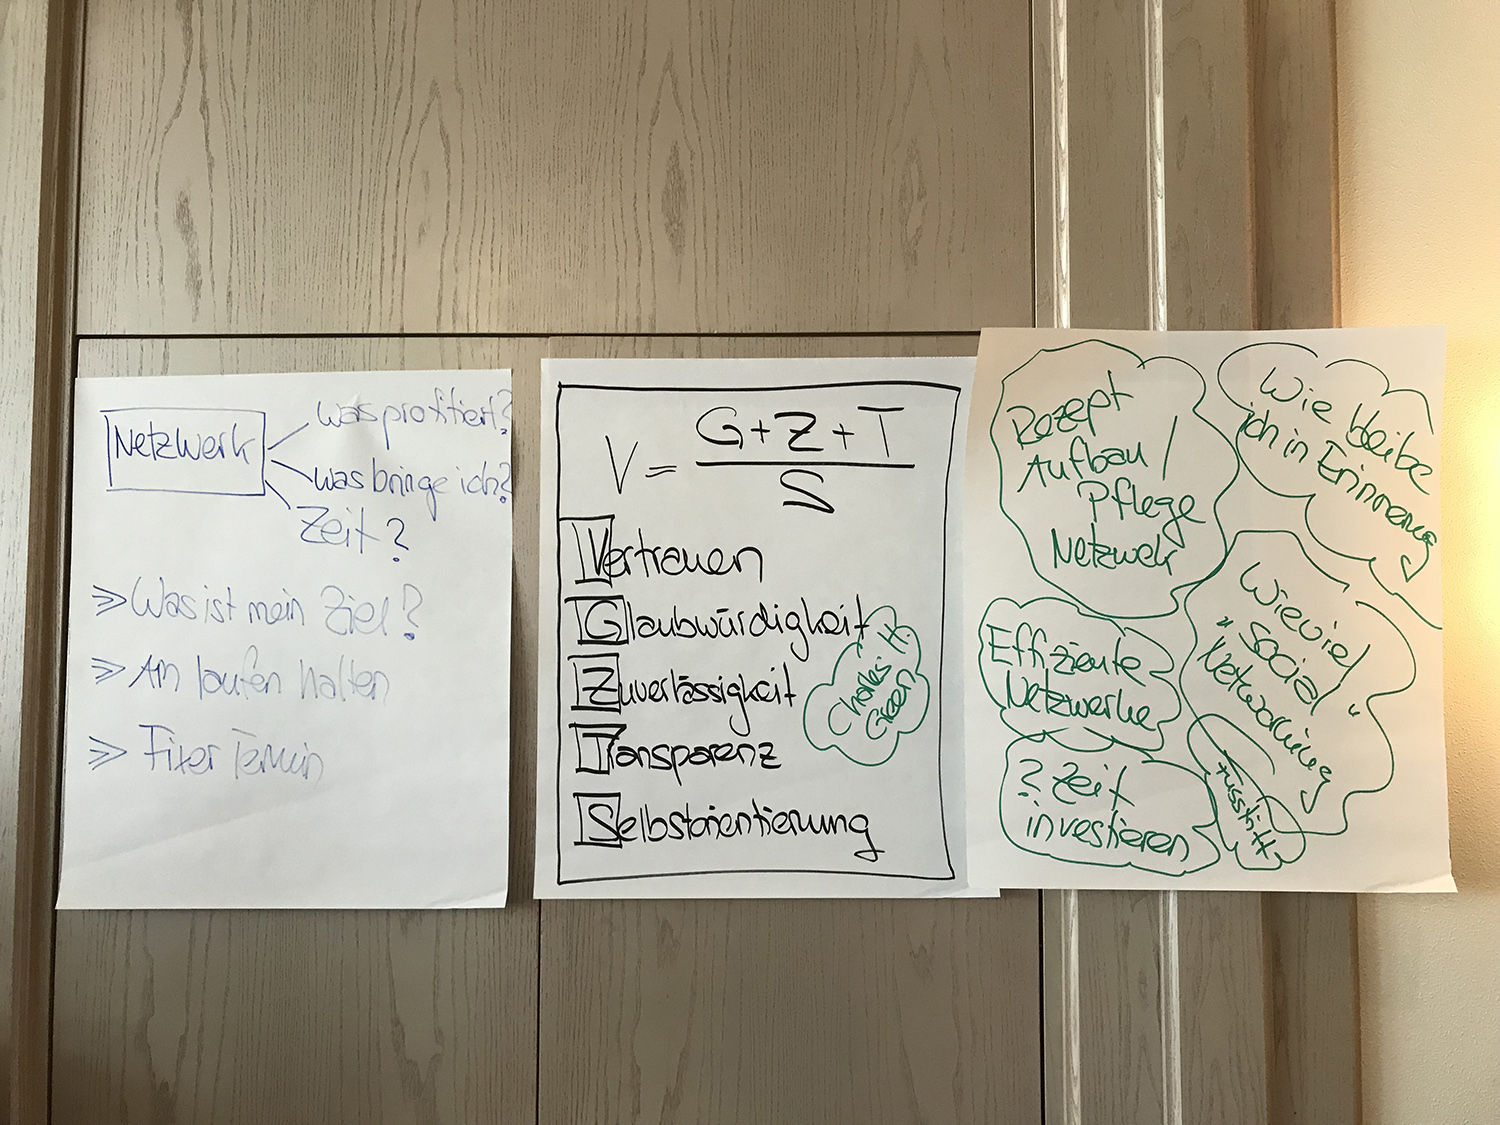 Netzwerk
was profitiert?
was bringe ich?
Zeit?
≫ Was ist mein Ziel?
≫ Am laufen halten
≫ Fixer Termin
V = G+Z+T
S
Vertrauen
Glaubwürdigkeit
Zuverlässigkeit
Transparenz
Selbstorientierung
Charles H.
Green
Rezept
Aufbau /
Pflege
Netzwerk
Wie bleibe
ich in Erinnerung
Effiziente
Netzwerke
Wieviel
"Social"
Networking
? Zeit
investieren